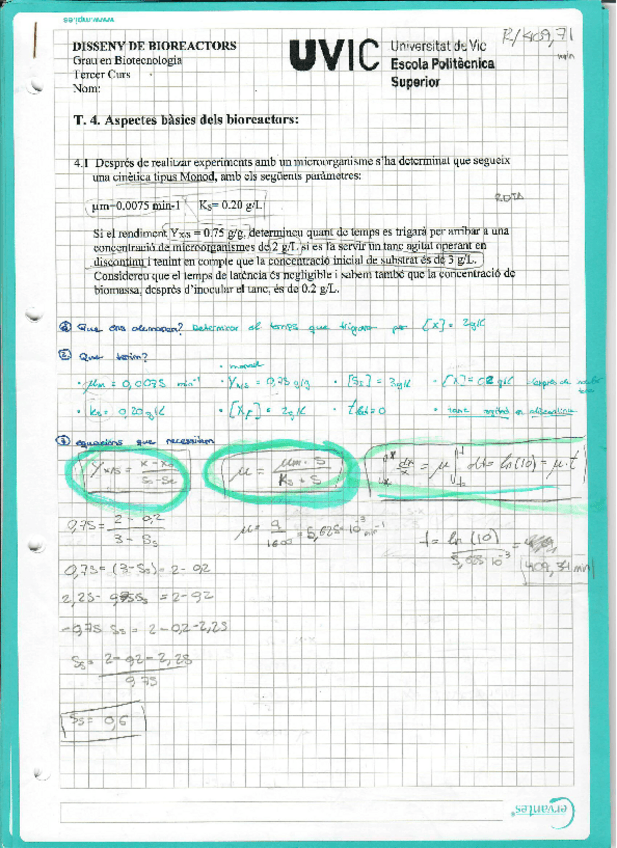 www.mpi.es
R/409,71
min
DISSENY DE BIOREACTORS
Grau en Biotecnologia
Tercer Curs
Nom:
UVIC
Universitat de Vic
Escola Politècnica
Superior
T. 4. Aspectes bàsics dels bioreactors:
4.1 Després de realitzar experiments amb un microorganisme s'ha determinat que segueix
una cinètica tipus Monod, amb els següents paràmetres:
μm=0.0075 min-1 Ks= 0.20 g/L
Si el rendiment Yx/s = 0.75 g/g, determineu quant de temps es trigarà per arribar a una
concentració de microorganismes de 2 g/L si es fa servir un tanc agitat operant en
discontinu i tenint en compte que la concentració inicial de substrat és de 3 g/L.
Considereu que el temps de latència és negligible i sabem també que la concentració de
biomassa, després d'inocular el tanc, és de 0.2 g/L.
① Que ens demanen? Determinar el temps que trigarà per [X] = 2g/L
② Que tenim?
· monod
· μm = 0,0075 min⁻¹ · Yx/s = 0,75 g/g · [S₀] = 3g/L · [X] = 0,2 g/L
· ks = 0,20 g/L · [XF] = 2g/L · t lat = 0 · tanc agitat en discontinu
③ equacions que necessitem
Yx/s = X - X₀ / S₀ - Se
μ = μm · S / Ks + S
dx/x = μ dt = ln(10) = μ·t
0,75 = 2 - 0,2 / 3 - Ss
μ = 9/1600 = 5,625·10⁻³ min⁻¹
t = ln(10) / 5,625·10⁻³ =
409,34 min
0,75 = (3 - Ss) = 2 - 0,2
2,25 - 0,75 Ss = 2 - 0,2
-0,75 Ss = 2 - 0,2 - 2,25
Ss = 2 - 0,2 - 2,25 / 0,75
Ss = 0,6
cervantes